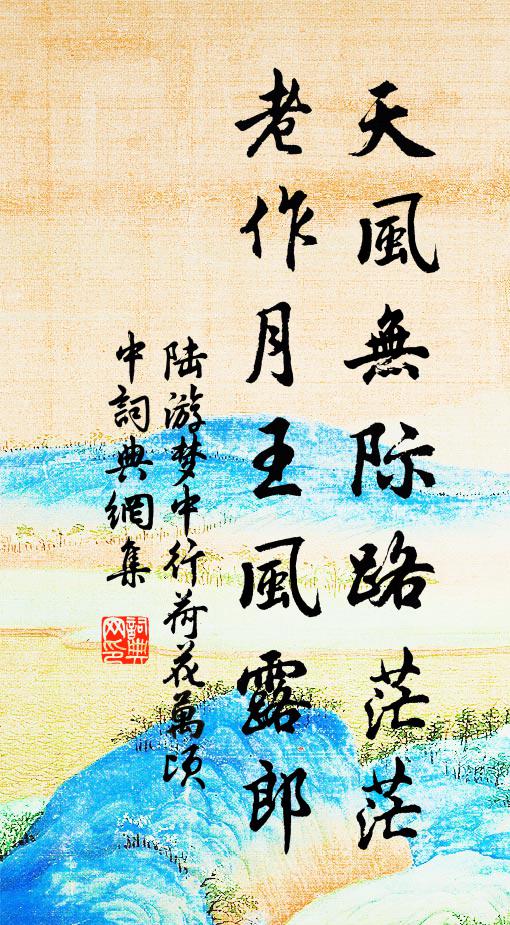 天風無际路茫茫
老作月王風露郎
陆游梦中行荷花萬頃
中詞典網集
詞典网印